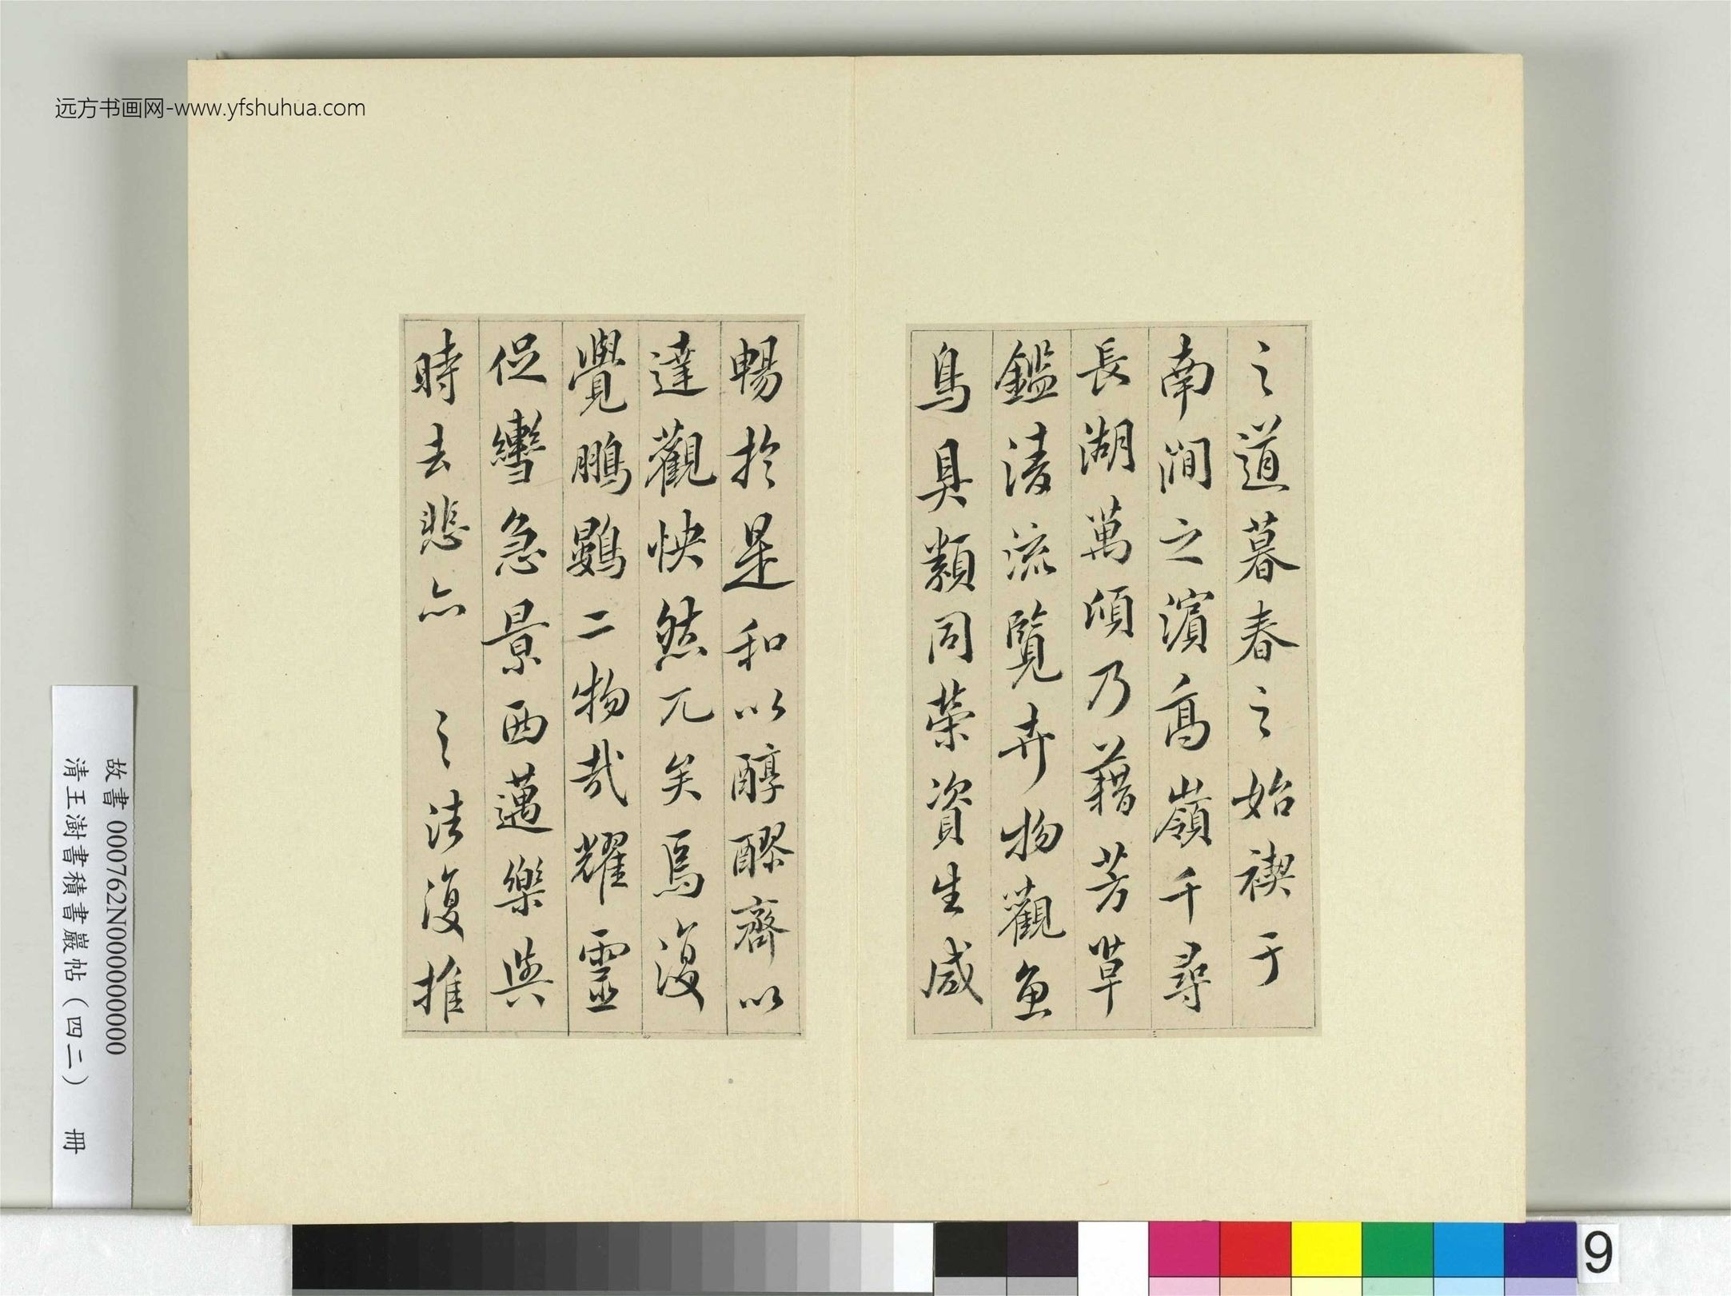 远方书画网-www.yfshuhua.com
之道暮春之始禊于
南澗之濱高嶺千尋
長湖萬頃乃藉芳草
鑑清流覽卉物觀魚
鳥具類同榮資生咸
暢於是和以醇醪齊以
達觀快然兀矣焉復
覺鵬鷃二物哉耀靈
促轡急景西邁樂與
時去悲亦 之往復推
故書 000762N000000000
清王澍書積書巖帖(四二) 冊
9